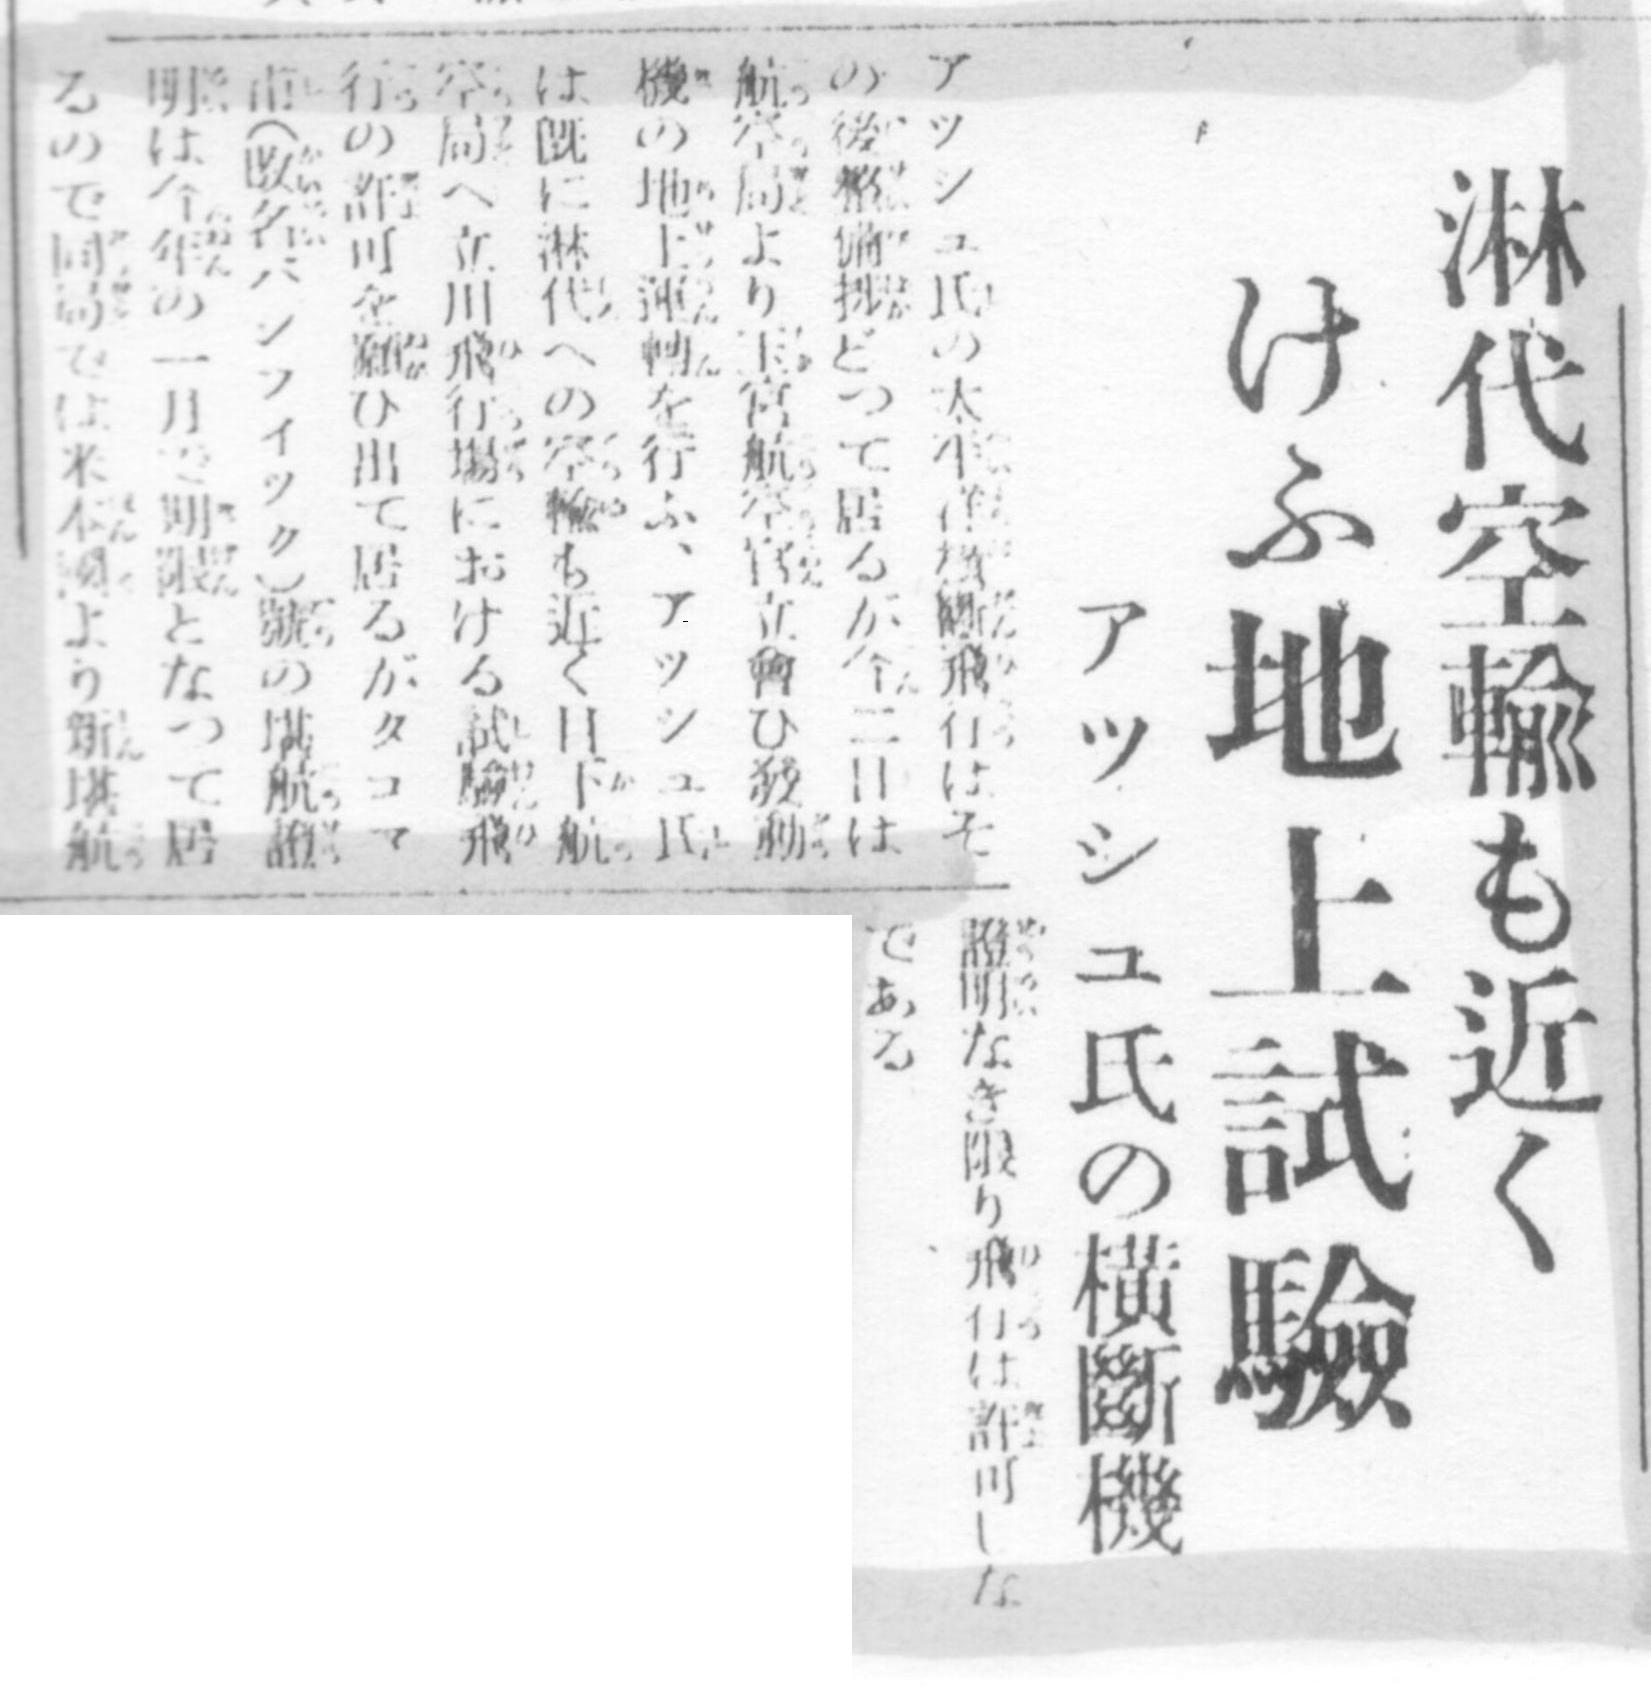 淋代空輸も近く
けふ地上試驗
アッシュ氏の橫斷機
アツシユ氏の太平洋橫斷飛行はそ
の後整備捗どつて居るが今二日は
航空局より玉宮航空官立會ひ發動
機の地上運轉を行ふ、アッシュ氏
は既に淋代への空輸も近く目下航
空局へ立川飛行場における試驗飛
行の許可を願ひ出て居るがタコマ
市(改名パシフイツク)號の堪航證
明は今年の一月で期限となつて居
るので同局では米本國より新堪航
證明なき限り飛行は許可しな
である